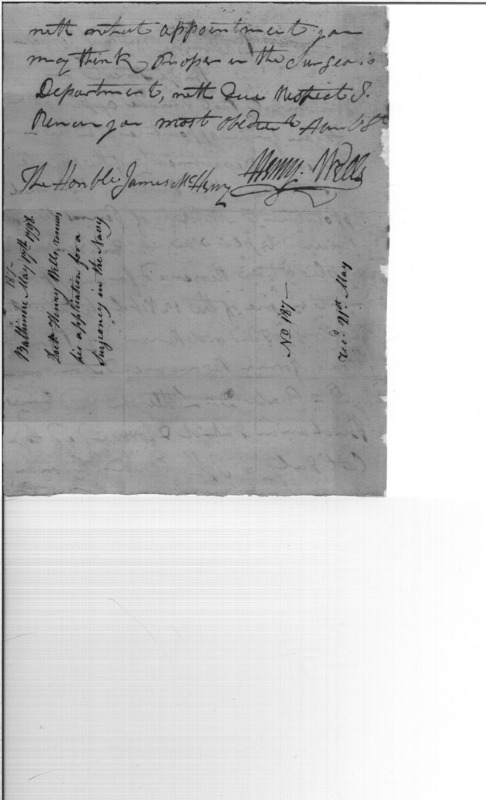 with what appointment you
may think Proper in the Surgeon's
Department, with Due Respect I
Remain your most obedient Humb St
Henry. Wells
The Honble. James McHenry
187-
Baltimore May 17th 1798.
Doctr Henry Wells, renews
his application for a
Surgeoncy in the Navy
No 187-
recd. 21st May